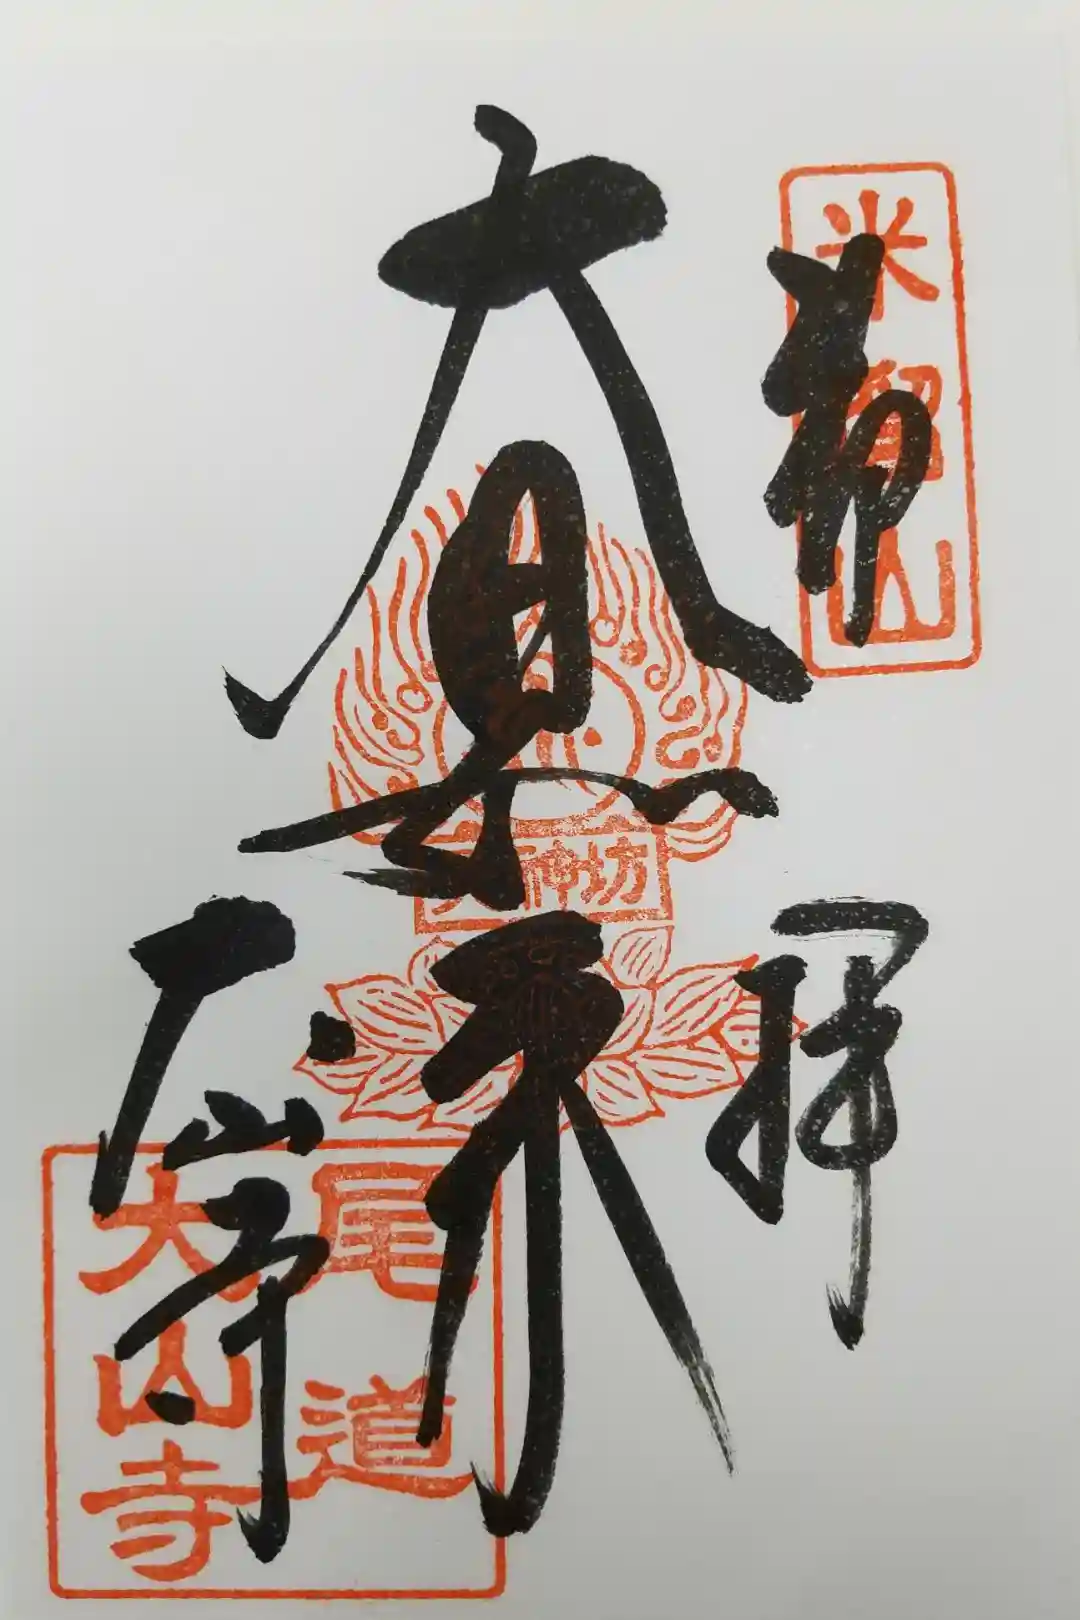 奉拝
米留山
大日如来
天神坊
大山寺
尾道
大山寺